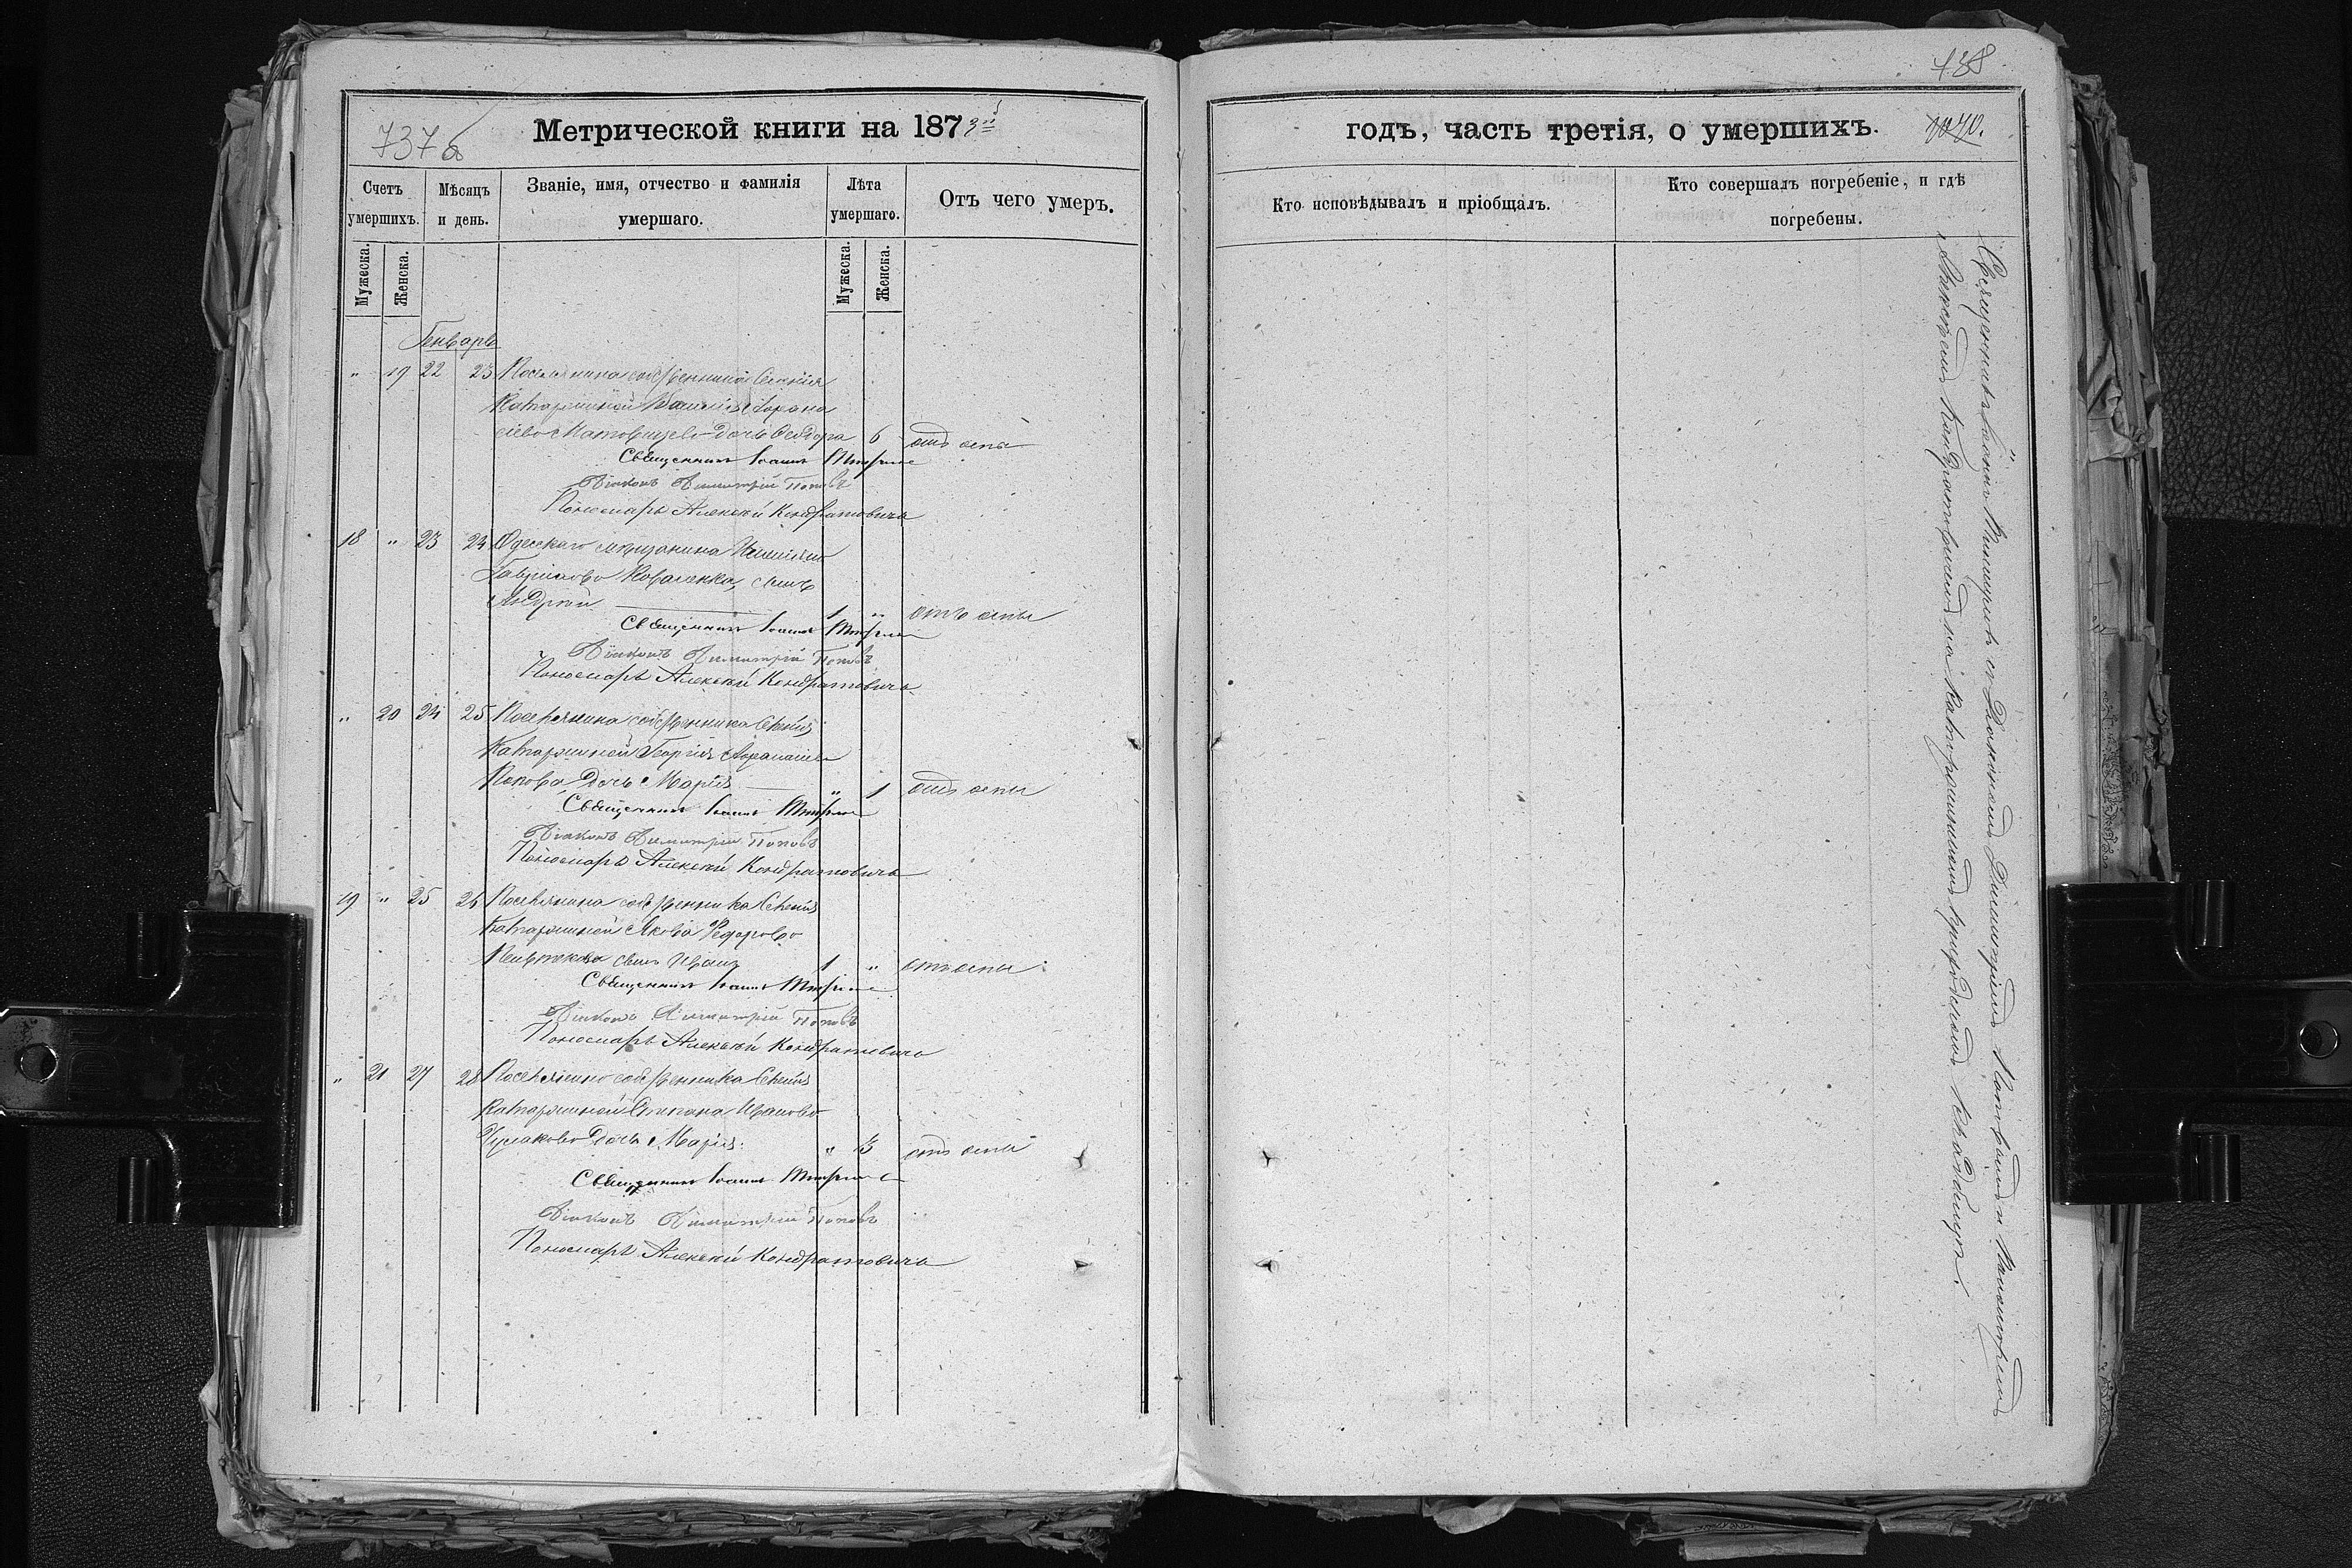 737б
Метрической книги на 1873й
Счетъ умершихъ.
Мѣсяцъ и день.
Званіе, имя, отчество и фамилія умершаго.
Лѣта умершаго.
Отъ чего умеръ.
Мужеска.
Женска.
Мужеска.
Женска.
Генварь
" 19 22 23 Поселянина собственника Селенія
Катаржиной
дочь Феодора 6 отъ оспы
Священникъ Іоаннъ
Діаконъ Димитрій Поповъ
Пономарь Алексѣй Кондратовичъ
18 " 23 24 Одесскаго мѣщанина
Гаврилова Коваленка, сынъ
Андрей 1 " отъ оспы
Священникъ Іоаннъ
Діаконъ Димитрій Поповъ
Пономарь Алексѣй Кондратовичъ
" 20 24 25 Поселянина собственника Селенія
Катаржиной Георгія
дочь Марія " 1 отъ оспы
Священникъ Іоаннъ
Діаконъ Димитрій Поповъ
Пономарь Алексѣй Кондратовичъ
19 " 25 26 Поселянина собственника Селенія
Катаржиной Якова Федорова
сынъ Иванъ 1 " отъ оспы
Священникъ Іоаннъ
Діаконъ Димитрій Поповъ
Пономарь Алексѣй Кондратовичъ
" 21 27 28 Поселянина собственника Селенія
Катаржиной Степана Иванова
Чумакова дочь Марія " 3 отъ оспы
Священникъ Іоаннъ
Діаконъ Димитрій Поповъ
Пономарь Алексѣй Кондратовичъ
738
годъ, часть третія, о умершихъ.
Кто исповѣдывалъ и пріобщалъ.
Кто совершалъ погребеніе, и гдѣ погребены.
Священникъ Іоаннъ съ Діакономъ Димитріемъ Поповымъ и Пономаремъ
Алексѣемъ Кондратовичемъ на Катаржинскомъ приходскомъ кладбищѣ.